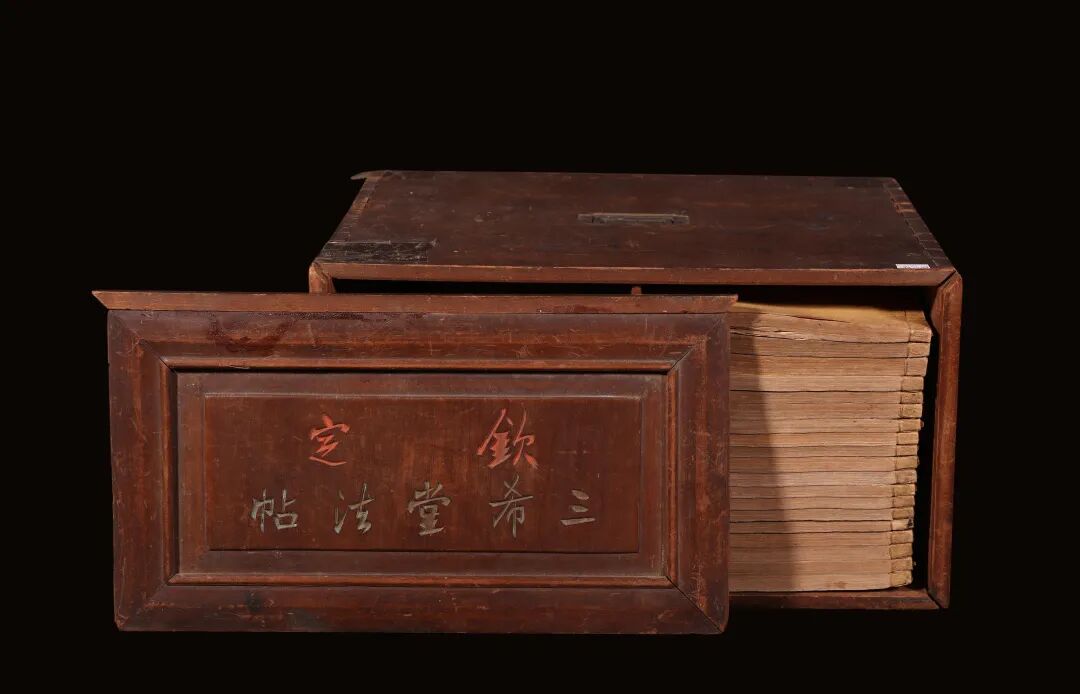 欽定
三希堂法帖